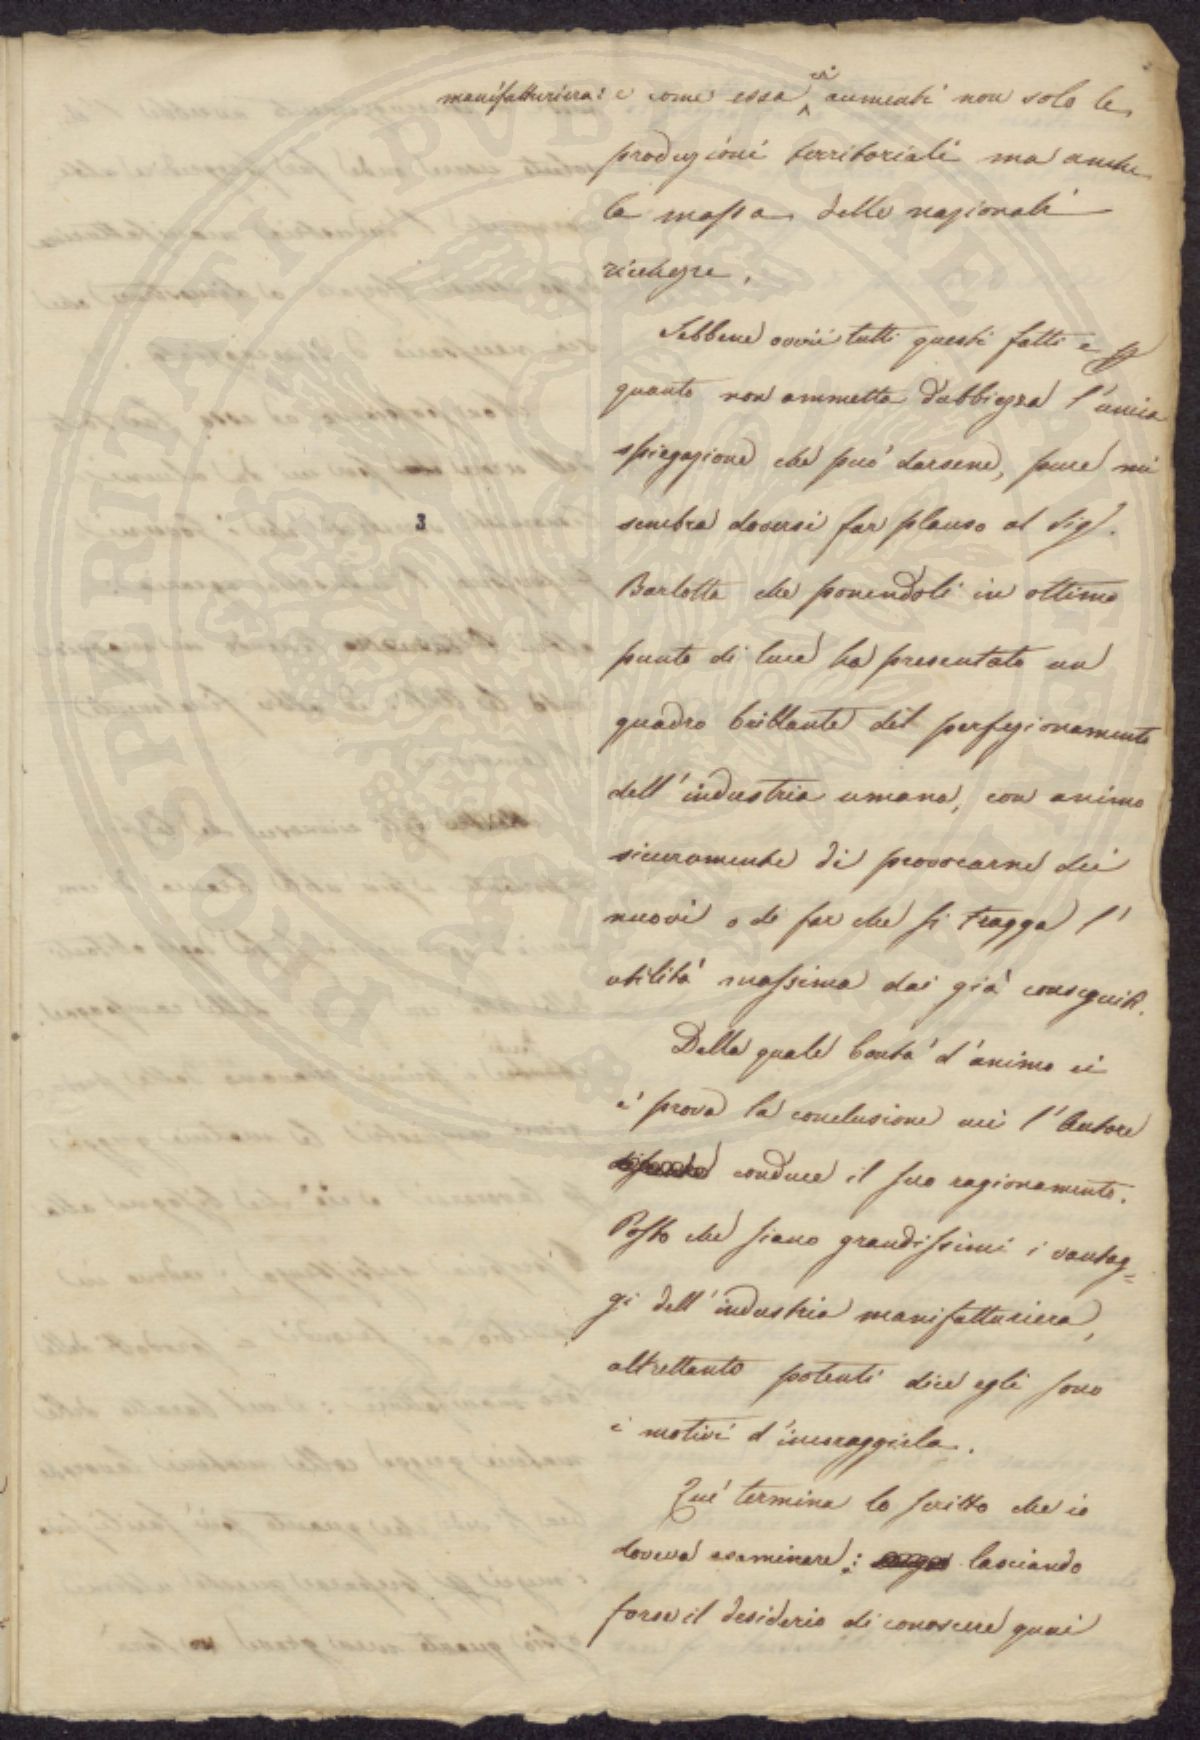 manifatturiera: e come essa ci aumenti non solo le
produzioni territoriali ma anche
la massa delle nazionali
ricchezze.
Sebbene ovvii tutti questi fatti e
quanto non ammetta dubbiezza l'unica
spiegazione che può darsene, pure mi
sembra doversi far plauso al Sig.r
Barlotta che ponendoli in ottimo
punto di luce ha presentato un
quadro brillante del perfezionamento
dell'industria umana, con animo
sicuramente di provocarne dei
nuovi o di far che si tragga l'
utilità massima dai già conseguiti.
Della quale bontà d'animo ci
è prova la conclusione cui l'Autore
conduce il suo ragionamento.
Posto che siano grandissimi i vantag=
gi dell'industria manifatturiera,
altrettanto potenti dice egli sono
i motivi d'incoraggirla.
Qui termina lo scritto che io
doveva esaminare: lasciando
forse il desiderio di conoscere quai
3
PROSPERITATI PVBLICAE